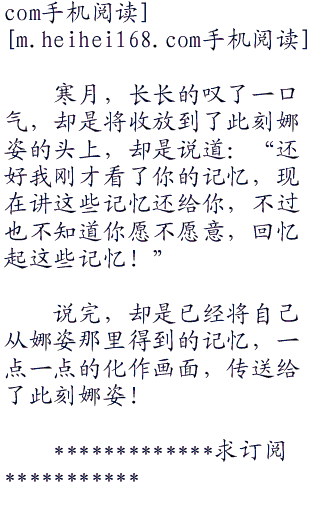 com手机阅读]
[m.heihei168.com手机阅读]
寒月，长长的叹了一口
气，却是将收放到了此刻娜
姿的头上，却是说道：“还
好我刚才看了你的记忆，现
在讲这些记忆还给你，不过
也不知道你愿不愿意，回忆
起这些记忆！”
说完，却是已经将自己
从娜姿那里得到的记忆，一
点一点的化作画面，传送给
了此刻娜姿！
*************求订阅
***********